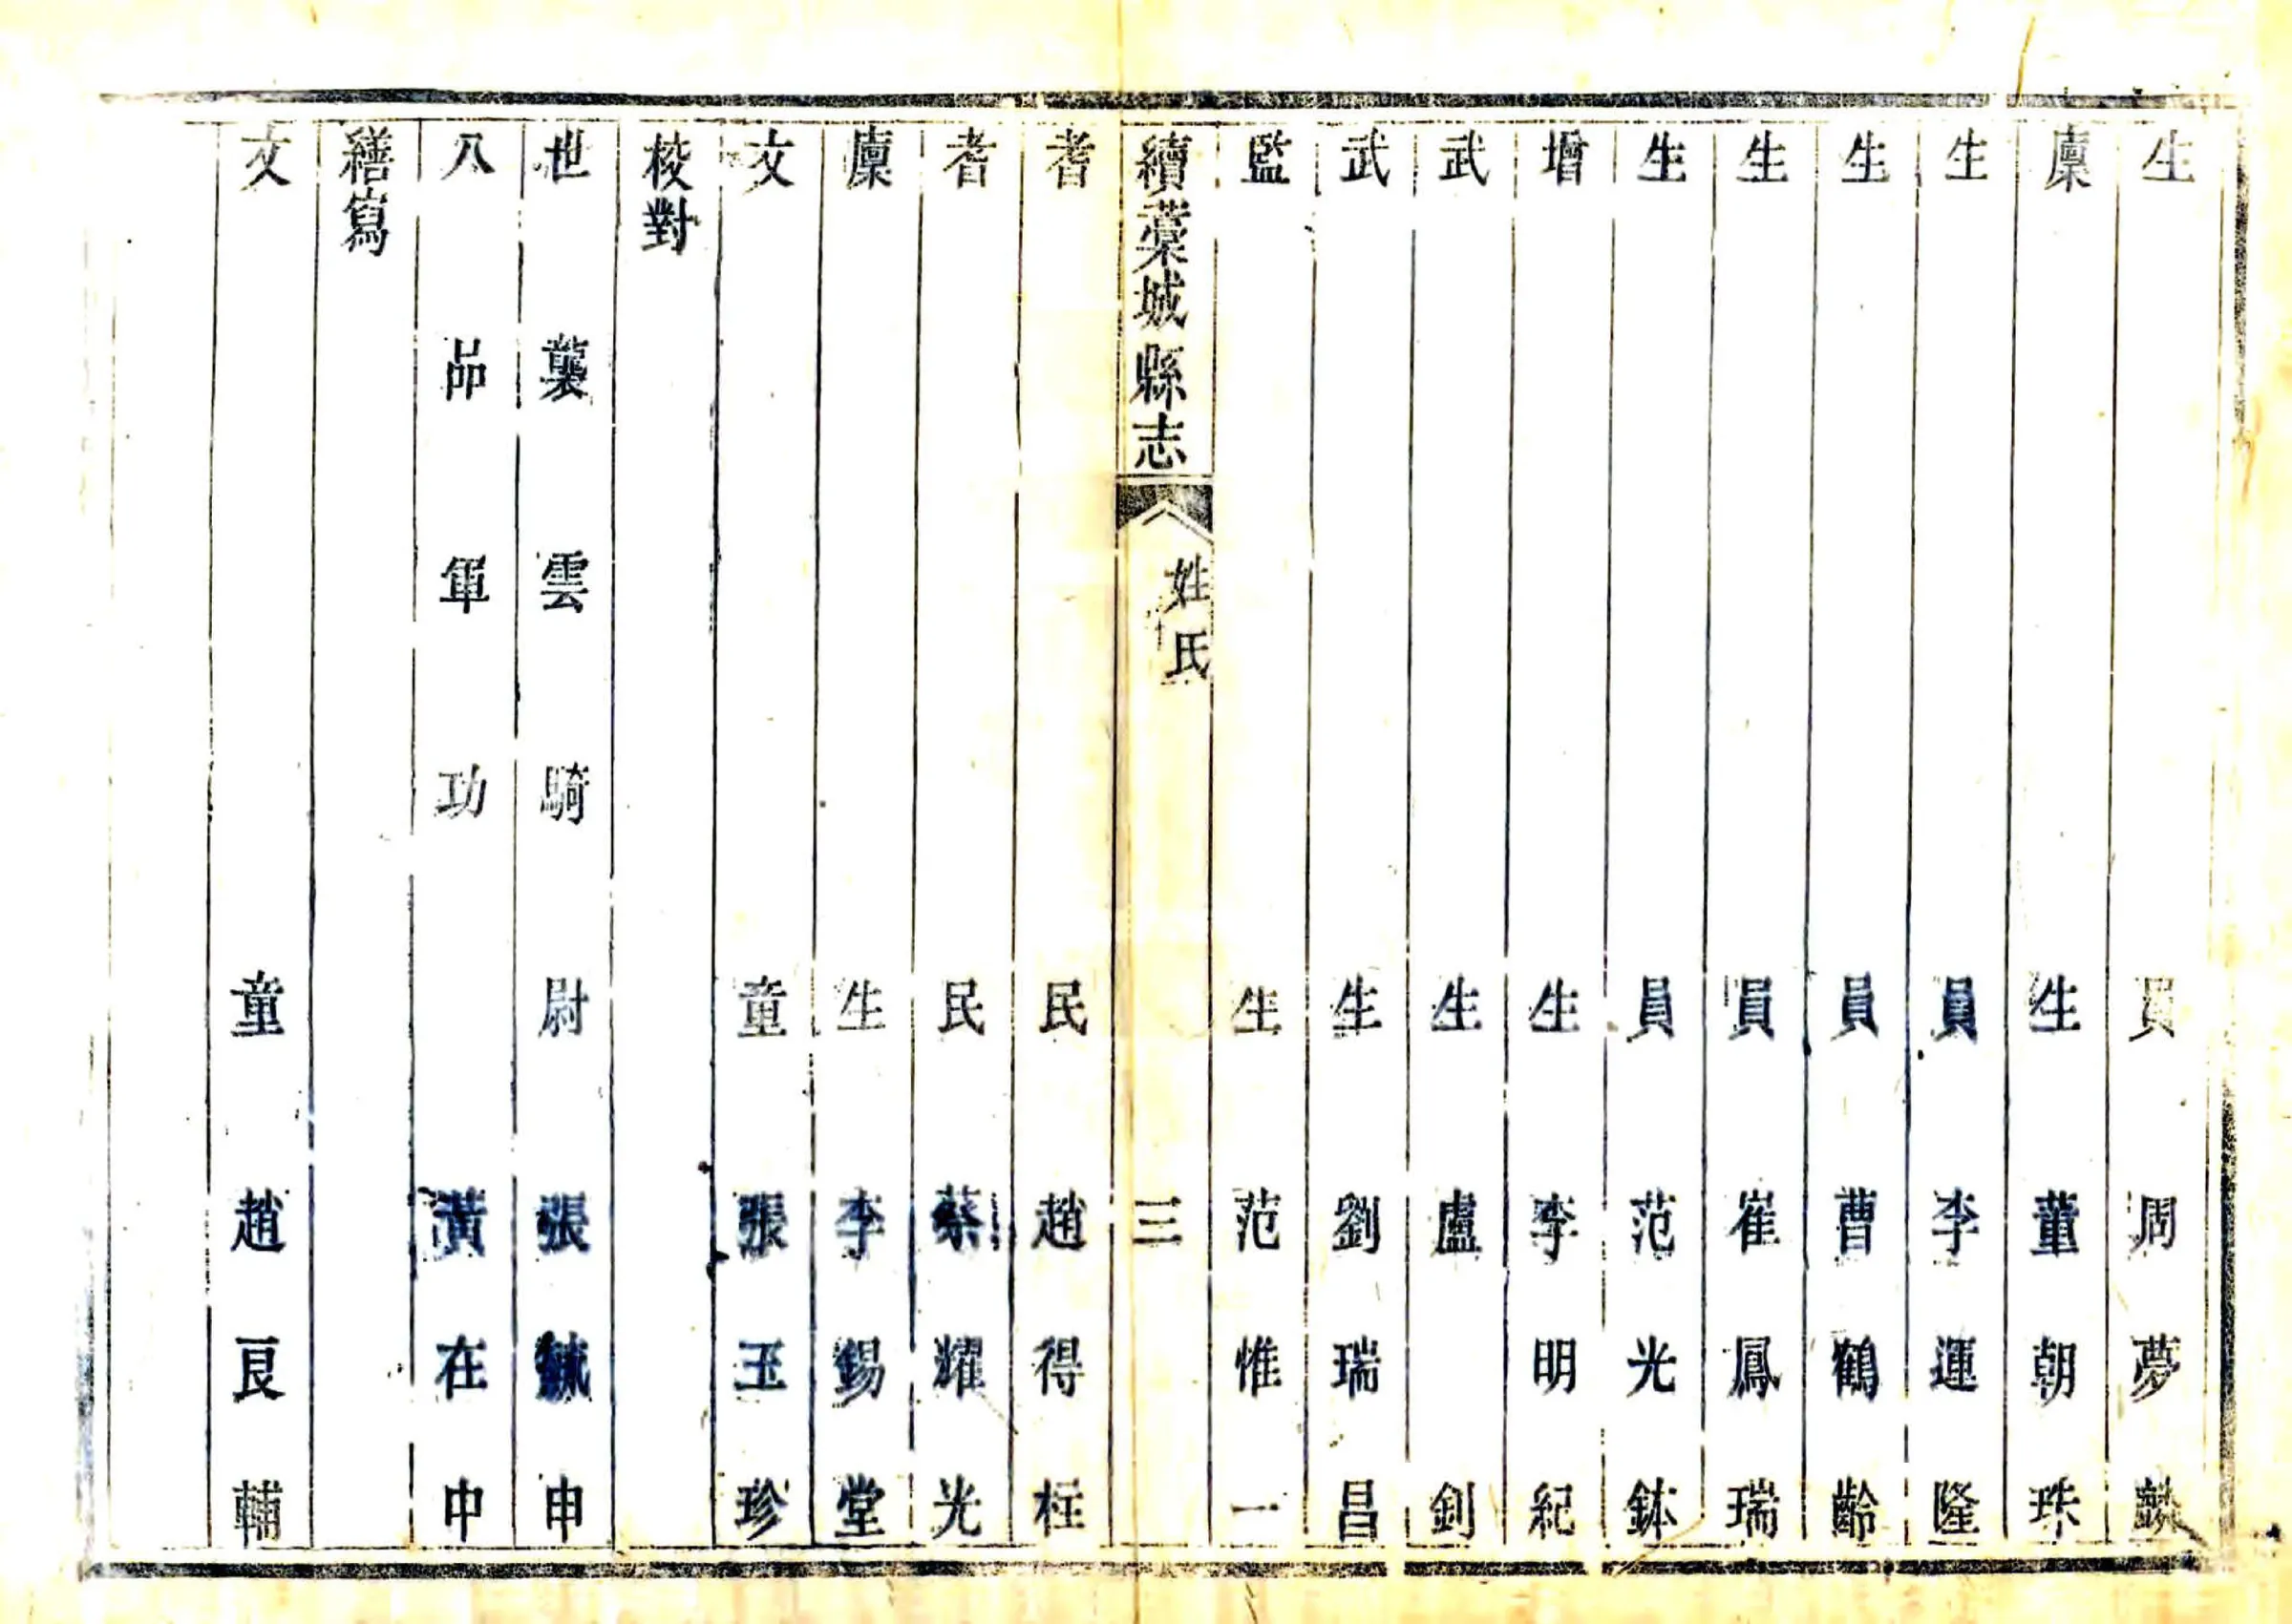 生員周夢麟
廩生董朝珠
生員李運隆
生員曹鶴齡
生員崔鳳瑞
生員范光鉢
增生李明紀
武生盧釗
武生劉瑞昌
監生范惟一
續藁城縣志 姓氏 三
耆民趙得柱
耆民蔡耀光
廩生李錫堂
文童張玉珍
校對
世襲雲騎尉張毓申
八品軍功黃在中
繕寫
文童趙良輔